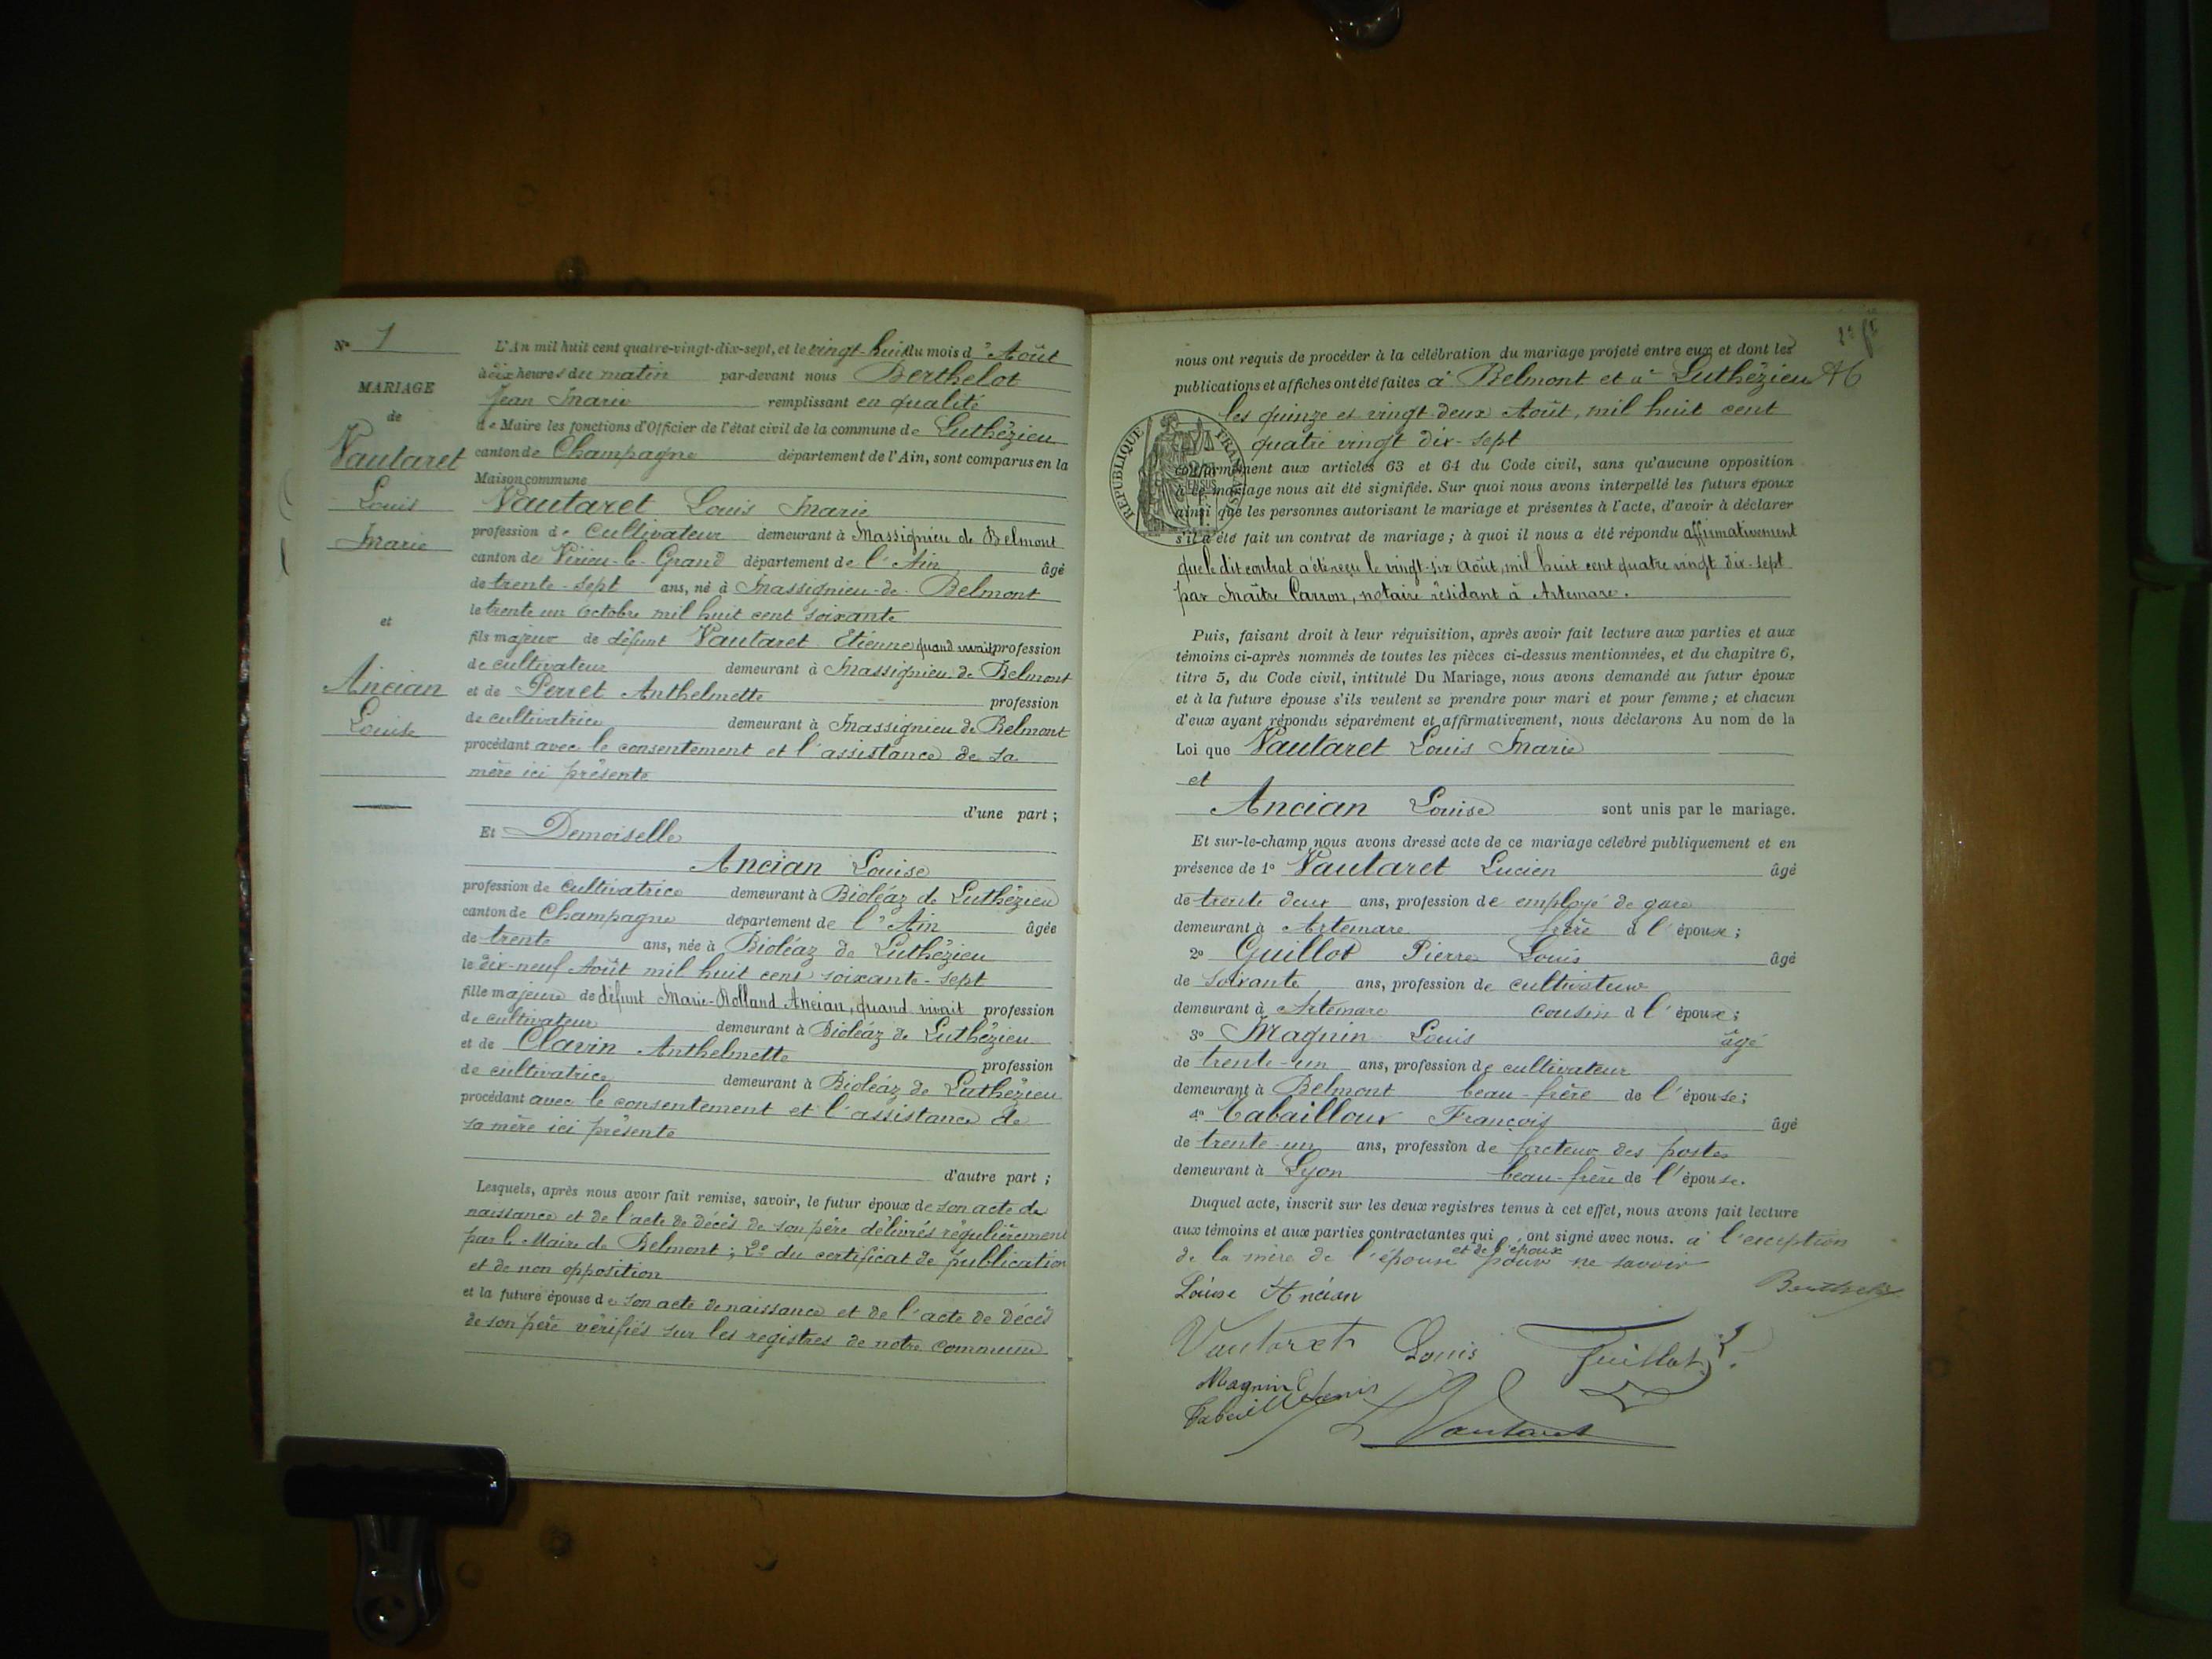 N° 1
MARIAGE
de
Vautaret
Louis
Marie
et
Ancian
Louise
L'An mil huit cent quatre-vingt-dix-sept, et le vingt-huit du mois d'Août
à dix heures du matin par-devant nous Berthelot
Jean Marie remplissant en qualité
de Maire les fonctions d'Officier de l'état civil de la commune de Luthézieu
canton de Champagne département de l'Ain, sont comparus en la
Maison commune
Vautaret Louis Marie
profession de cultivateur demeurant à Massignieu de Belmont
canton de Virieu-le-Grand département de l'Ain âgé
de trente-sept ans, né à Massignieu-de-Belmont
le trente un Octobre mil huit cent soixante
fils majeur de défunt Vautaret Etienne quand vivait profession
de cultivateur demeurant à Massignieu de Belmont
et de Perret Anthelmette profession
de cultivatrice demeurant à Massignieu de Belmont
procédant avec le consentement et l'assistance de sa
mère ici présente
d'une part ;
Et Demoiselle
Ancian Louise
profession de cultivatrice demeurant à Bioléaz de Luthézieu
canton de Champagne département de l'Ain âgée
de trente ans, née à Bioléaz de Luthézieu
le dix-neuf Août mil huit cent soixante-sept
fille majeure de défunt Marie-Rolland Ancian, quand vivait profession
de cultivateur demeurant à Bioléaz de Luthézieu
et de Clavin Anthelmette profession
de cultivatrice demeurant à Bioléaz de Luthézieu
procédant avec le consentement et l'assistance de
sa mère ici présente
d'autre part ;
Lesquels, après nous avoir fait remise, savoir, le futur époux de son acte de
naissance et de l'acte de décès de son père délivrés régulièrement
par le Maire de Belmont ; 2° du certificat de publication
et de non opposition
et la future épouse de son acte de naissance et de l'acte de décès
de son père vérifiés sur les registres de notre commune
nous ont requis de procéder à la célébration du mariage projeté entre eux et dont les
publications et affiches ont été faites à Belmont et à Luthézieu
les quinze et vingt-deux Août, mil huit cent
quatre vingt dix-sept
RÉPUBLIQUE FRANÇAISE
conformément aux articles 63 et 64 du Code civil, sans qu'aucune opposition
à ce mariage nous ait été signifiée. Sur quoi nous avons interpellé les futurs époux
ainsi que les personnes autorisant le mariage et présentes à l'acte, d'avoir à déclarer
s'il a été fait un contrat de mariage ; à quoi il nous a été répondu affirmativement
que le dit contrat a été reçu le vingt-six Août, mil huit cent quatre vingt dix-sept
par Maître Carron, notaire résidant à Artemare.
Puis, faisant droit à leur réquisition, après avoir fait lecture aux parties et aux
témoins ci-après nommés de toutes les pièces ci-dessus mentionnées, et du chapitre 6,
titre 5, du Code civil, intitulé Du Mariage, nous avons demandé au futur époux
et à la future épouse s'ils veulent se prendre pour mari et pour femme ; et chacun
d'eux ayant répondu séparément et affirmativement, nous déclarons Au nom de la
Loi que Vautaret Louis Marie
et
Ancian Louise sont unis par le mariage.
Et sur-le-champ nous avons dressé acte de ce mariage célébré publiquement et en
présence de 1° Vautaret Lucien âgé
de trente deux ans, profession de employé de gare
demeurant à Artemare frère d l'époux ;
2° Guillot Pierre Louis âgé
de soixante ans, profession de cultivateur
demeurant à Artemare cousin d l'époux ;
3° Magnin Louis âgé
de trente-un ans, profession de cultivateur
demeurant à Belmont beau-frère de l'épouse ;
4° Cabailloux François âgé
de trente-un ans, profession de facteur des postes
demeurant à Lyon beau-frère de l'épouse.
Duquel acte, inscrit sur les deux registres tenus à cet effet, nous avons fait lecture
aux témoins et aux parties contractantes qui ont signé avec nous. à l'exception
de la mère de l'épouse et de l'époux pour ne savoir
Louise Ancian
Berthelot
Vautaret Louis
Guillot
Magnin Louis
Vautaret